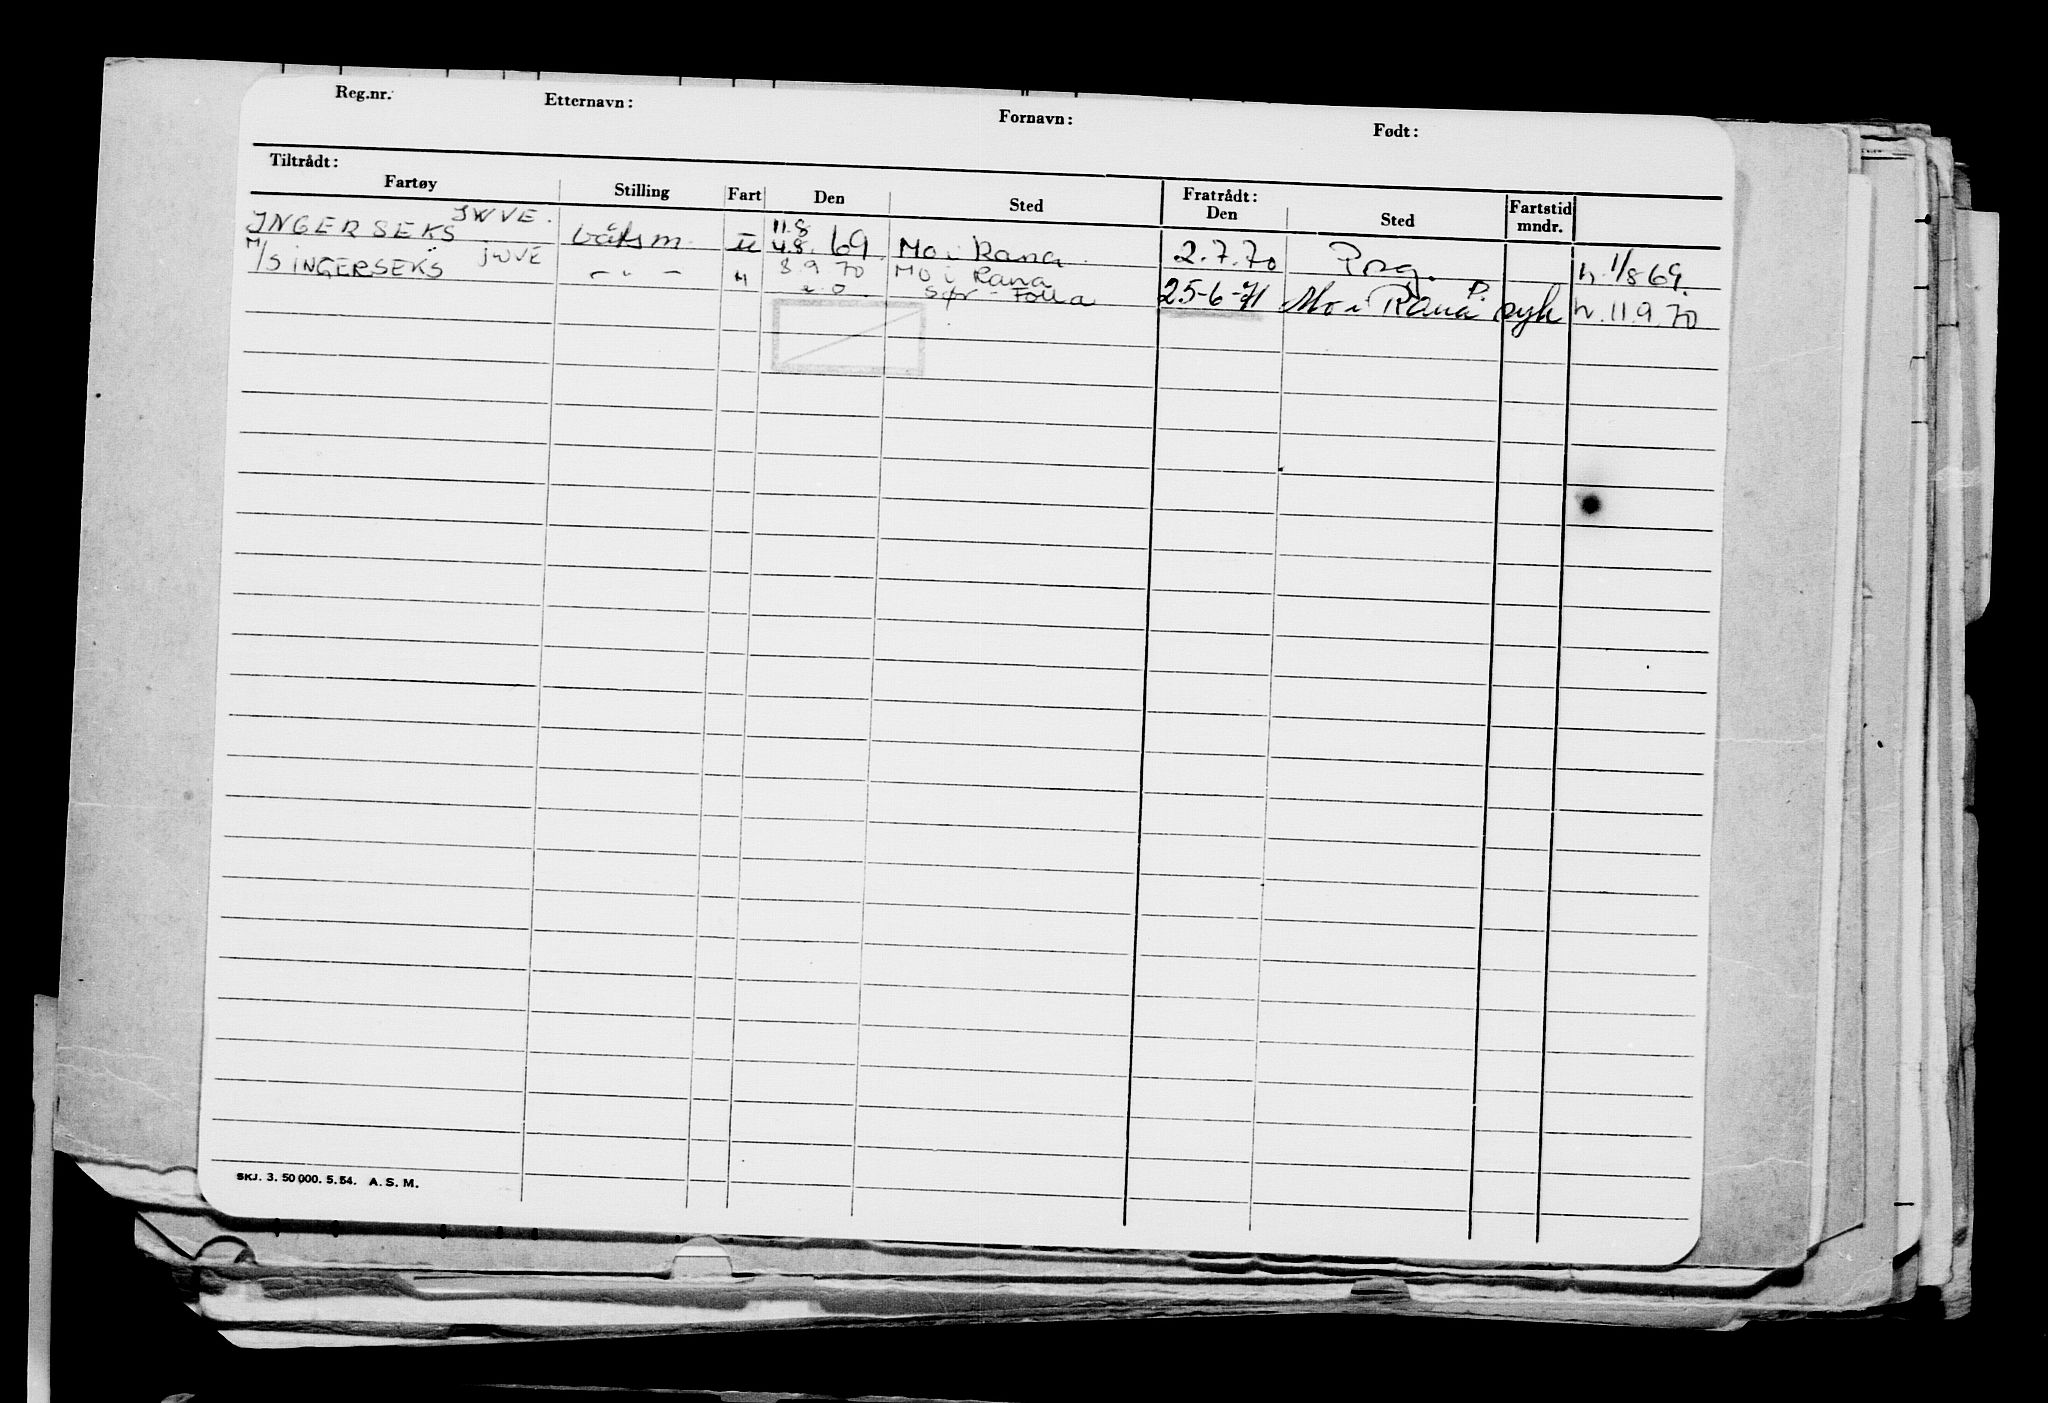 Reg.nr. Etternavn: Fornavn: Født:
Tiltrådt: Fratrådt:
Fartøy Stilling Fart Den Sted Den Sted Fartstid mndr.
JWVE.
INGERSEKS båtsm. U 11.8 4.8. 69 Mo i Rana. 2.7.70 Prg. h. 1/8 69.
M/S INGERSEKS JWVE - " - " 3.9 70 Mo i Rana 25-6-71 Mo i Rana P. syk h. 11.9.70
Sør-Folla
SKJ. 3. 50 000. 5. 54. A. S. M.